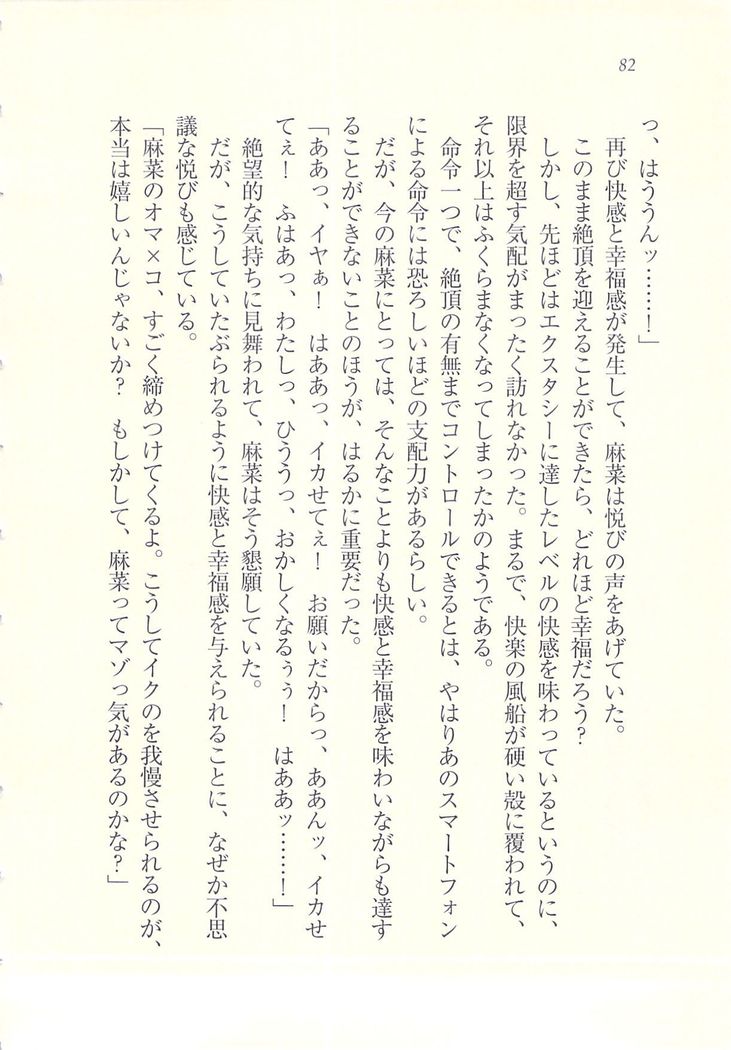 82
っ、はううんッ……！」
再び快感と幸福感が発生して、麻菜は悦びの声をあげていた。
このまま絶頂を迎えることができたら、どれほど幸福だろう？
しかし、先ほどはエクスタシーに達したレベルの快感を味わっているというのに、
限界を超す気配がまったく訪れなかった。まるで、快楽の風船が硬い殻に覆われて、
それ以上はふくらまなくなってしまったかのようである。
命令一つで、絶頂の有無までコントロールできるとは、やはりあのスマートフォン
による命令には恐ろしいほどの支配力があるらしい。
だが、今の麻菜にとっては、そんなことよりも快感と幸福感を味わいながらも達す
ることができないことのほうが、はるかに重要だった。
「ああっ、イヤぁ！　はああっ、イカせてぇ！　お願いだからっ、ああんッ、イカせ
てぇ！　ふはあっ、わたしっ、ひううっ、おかしくなるぅぅ！　はああッ……！」
絶望的な気持ちに見舞われて、麻菜はそう懇願していた。
だが、こうしていたぶられるように快感と幸福感を与えられることに、なぜか不思
議な悦びも感じている。
「麻菜のオマ×コ、すごく締めつけてくるよ。こうしてイクのを我慢させられるのが、
本当は嬉しいんじゃないか？　もしかして、麻菜ってマゾっ気があるのかな？」